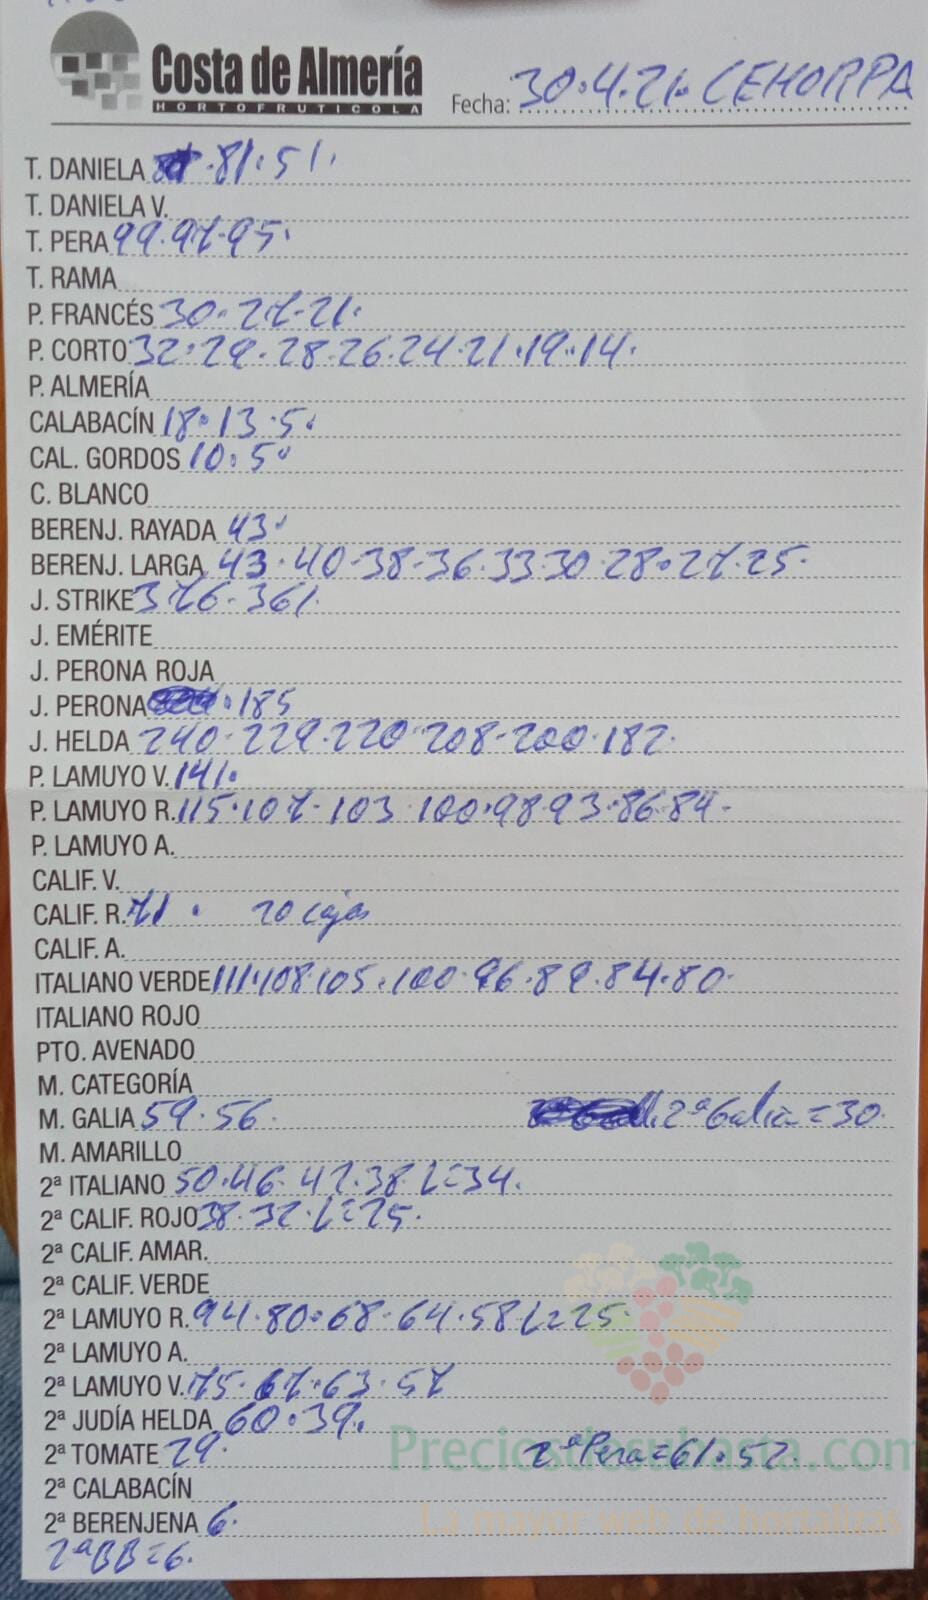 Costa de Almería
HORTOFRUTICOLA
Fecha: 30.4.21. CEHORPA
T. DANIELA .81.51.
T. DANIELA V.
T. PERA 99.97.95.
T. RAMA
P. FRANCÉS 30.27.21.
P. CORTO 32.29.28.26.24.21.19.14.
P. ALMERÍA
CALABACÍN 18.13.5.
CAL. GORDOS 10.5.
C. BLANCO
BERENJ. RAYADA 43.
BERENJ. LARGA 43.40.38.36.33.30.28.27.25.
J. STRIKE 376.361.
J. EMÉRITE
J. PERONA ROJA
J. PERONA .185
J. HELDA 240.229.220.208.200.182.
P. LAMUYO V. 141.
P. LAMUYO R. 115.107.103.100.98.93.86.84.
P. LAMUYO A.
CALIF. V.
CALIF. R. 71. 20 cajas
CALIF. A.
ITALIANO VERDE 111.108.105.100.96.89.84.80.
ITALIANO ROJO
PTO. AVENADO
M. CATEGORÍA
M. GALIA 59.56. 2ª Galia=30.
M. AMARILLO
2ª ITALIANO 50.46.42.38.L=34.
2ª CALIF. ROJO 38.32.L=25.
2ª CALIF. AMAR.
2ª CALIF. VERDE
2ª LAMUYO R. 94.80.68.64.58.L=25.
2ª LAMUYO A.
2ª LAMUYO V. 75.67.63.57
2ª JUDÍA HELDA 60.39.
2ª TOMATE 29. 2ª Pera=61.52.
Preciosdesubasta.com
2ª CALABACÍN
2ª BERENJENA 6.
La mayor web de hortalizas
2ª BB=6.